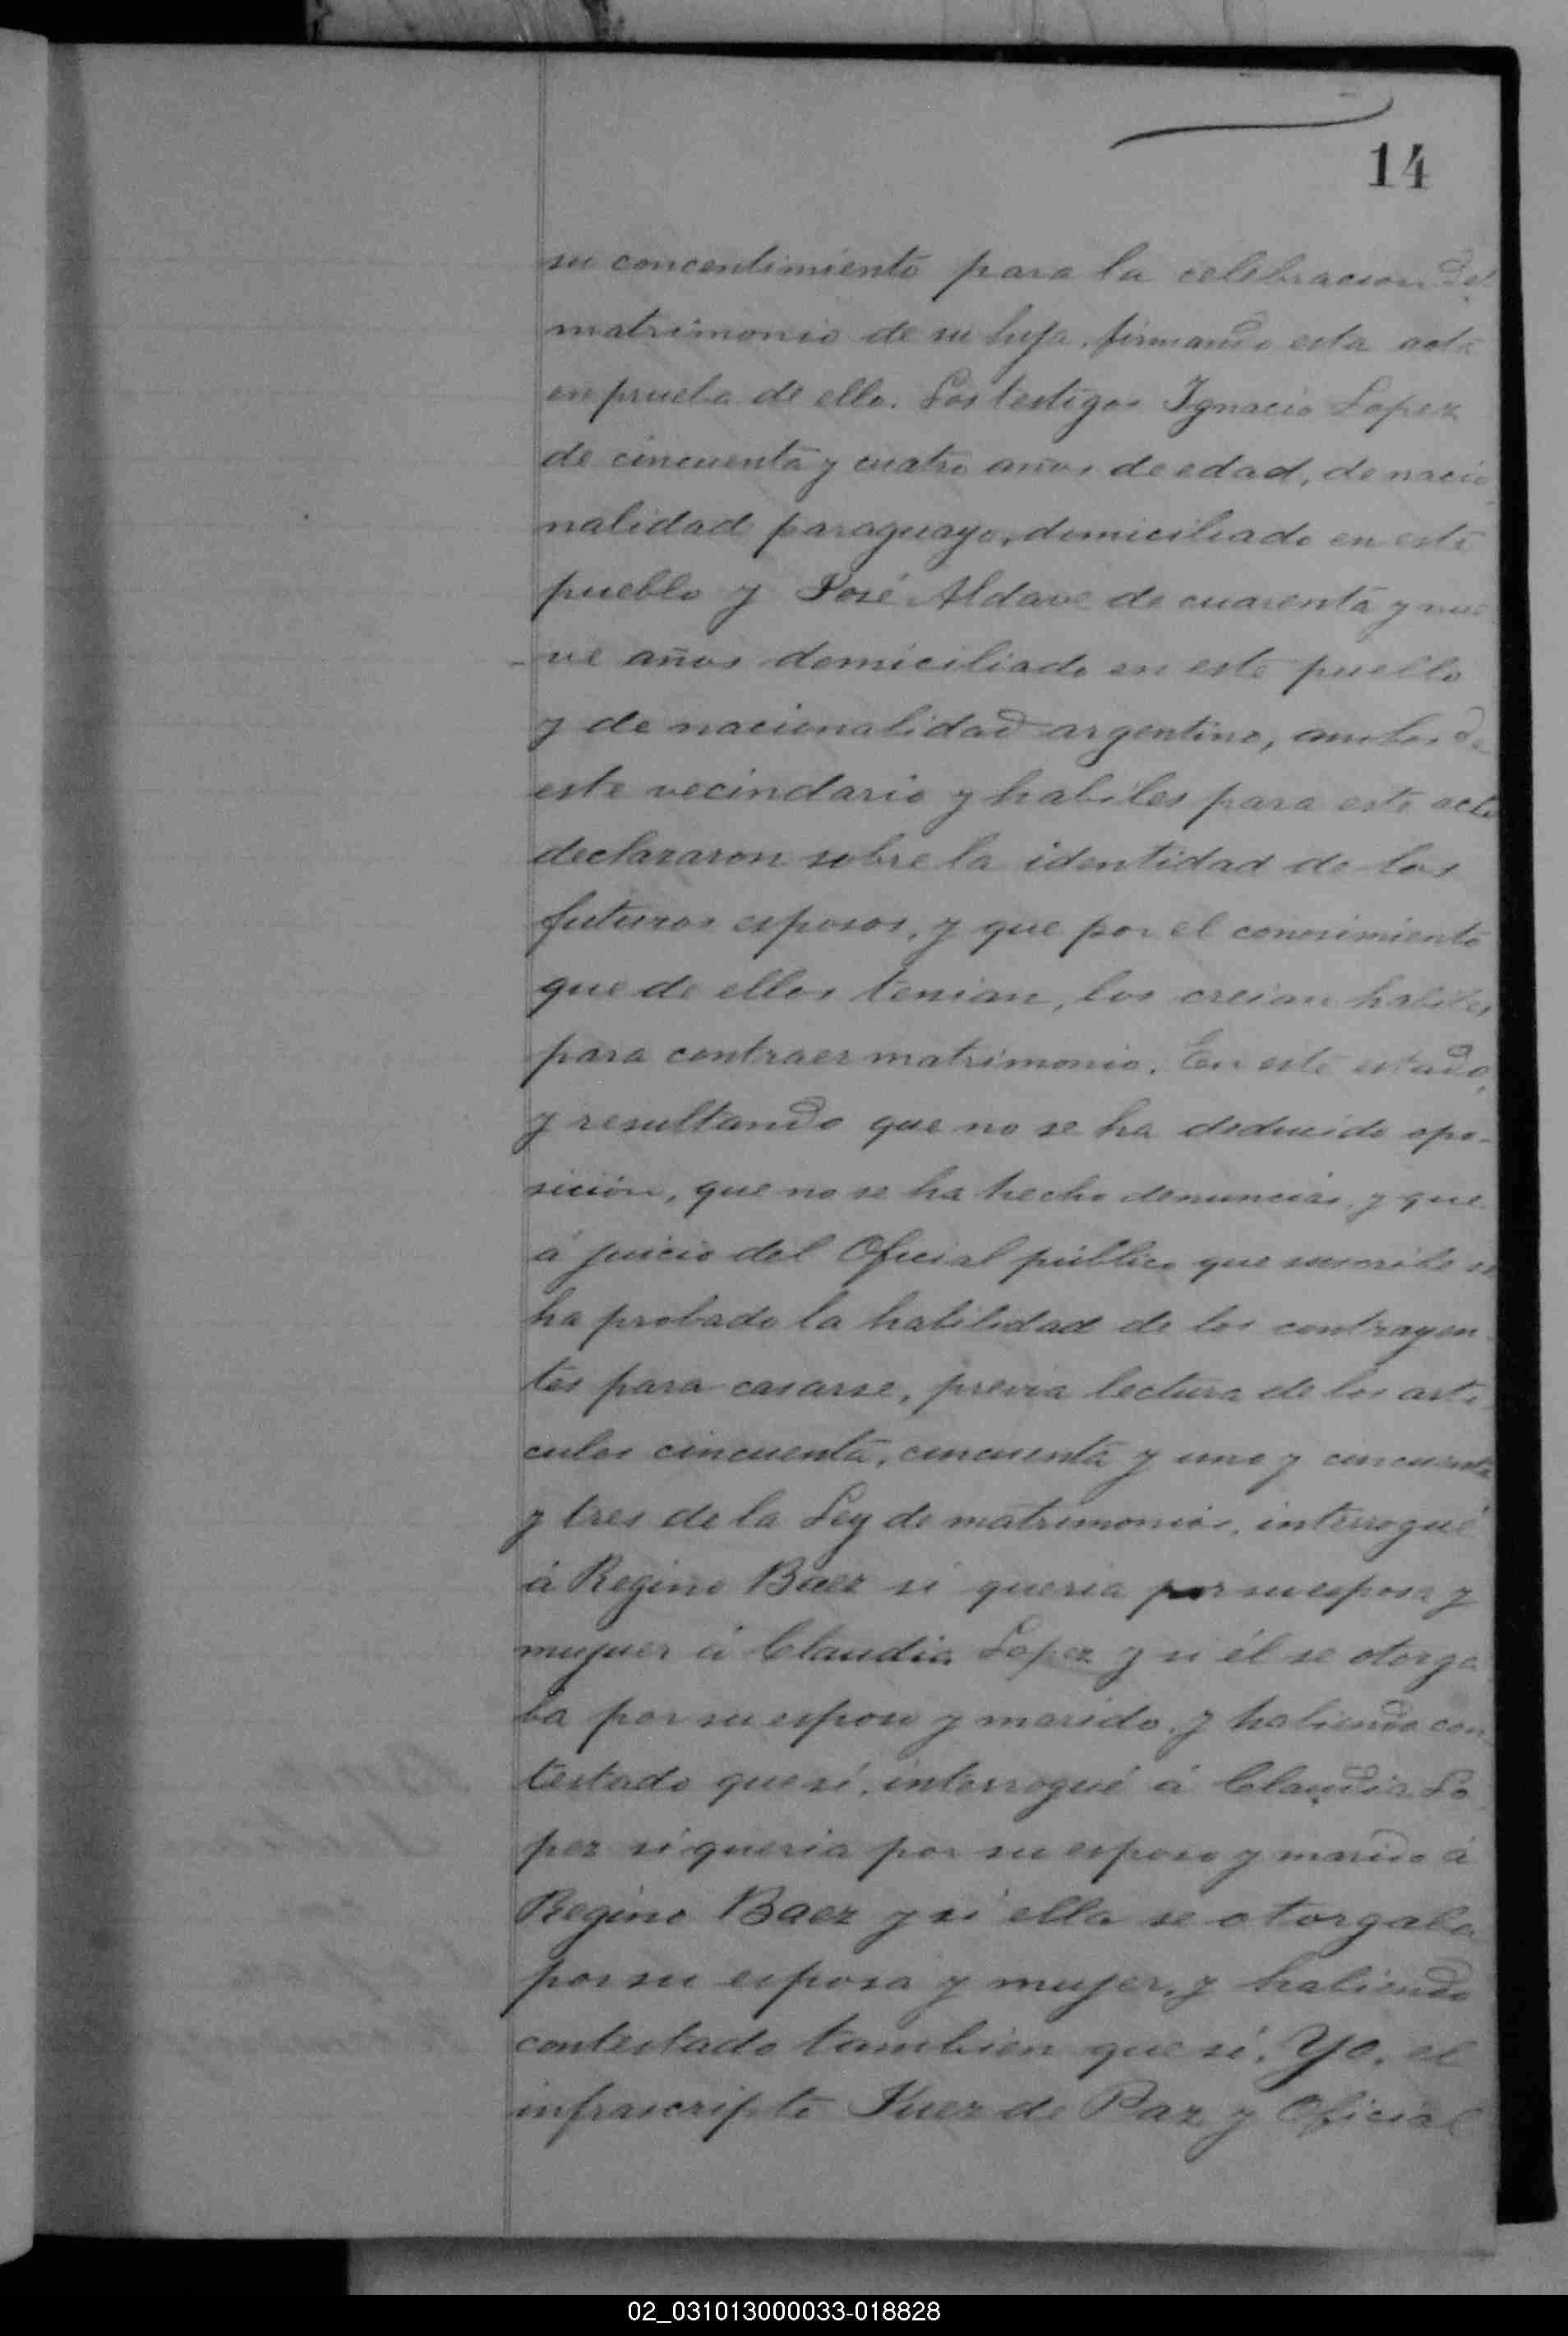 14
su concentimiento para la celebracion del
matrimonio de su hija, firmando esta acta
en prueba de ello. Los testigos Ignacio Lopez
de cincuenta y cuatro años de edad, de nacio
nalidad paraguayo, domiciliado en este
pueblo y José Aldave de cuarenta y nue
-ve años domiciliado en este pueblo
y de nacionalidad argentino, ambos de
este vecindario y habiles para este acto
declararon sobre la identidad de los
futuros esposos, y que por el conosimiento
que de ellos tenian, los creian habiles
para contraer matrimonio. En este estado,
y resultando que no se ha deducido opo-
sición, que no se ha hecho denuncias, y que
á juicio del Oficial público que suscribe se
ha probado la habilidad de los contrayen
tes para casarse, previa lectura de los arti
culos cincuenta, cincuenta y uno y cincuenta
y tres de la Ley de matrimonios, interrogué
á Regino Baez si queria por su esposa y
mujuer á Claudia Lopez y si él se otorga
ba por su esposo y marido, y habiendo con
testado que sí, interrogué á Claudia Lo
pez si queria por su esposo y marido á
Regino Baez y si ella se otorgaba
por su esposa y mujer, y habiendo
contestado tambien que sí, Yo, el
infrascripto Juez de Paz y Oficial
02_031013000033-018828